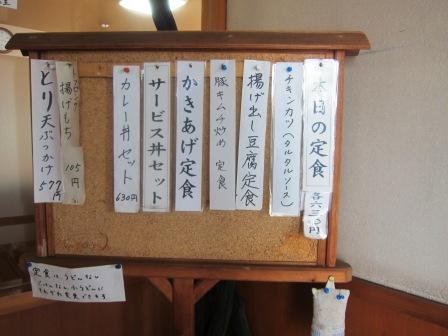 本日の定食
各六三〇円
チキンカツ(タルタルソース)
揚げ出し豆腐定食
豚キムチ炒め 定食
かきあげ定食
サービス丼セット
カレー丼セット
630円
揚げもち
105円
とり天ぶっかけ
577円
定食は、うどんなし